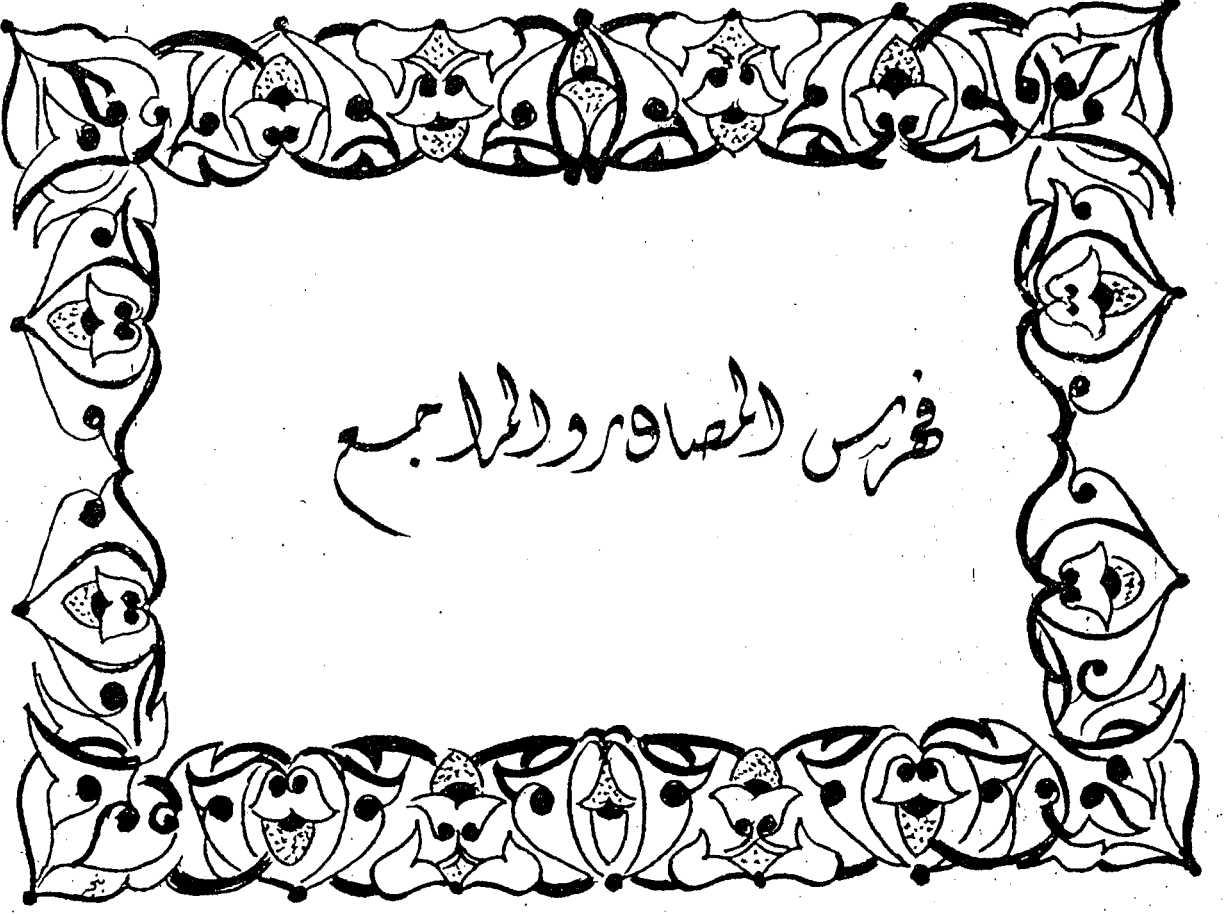 فهرس المصادر والمراجع